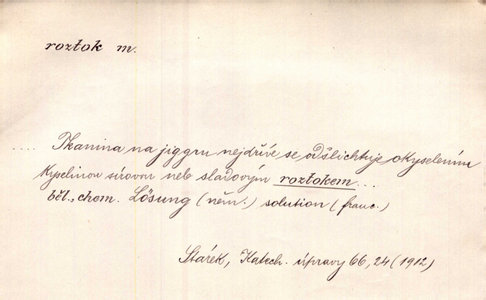 roztok m.
.... Tkanina na jiggru nejdříve se odšlichtuje okyselením
kyselinou sírovou neb sladovým roztokem...
běl., chem. Lösung (něm.) solution (franc.)
Stárek, Katech. úpravy 66, 24 (1912)